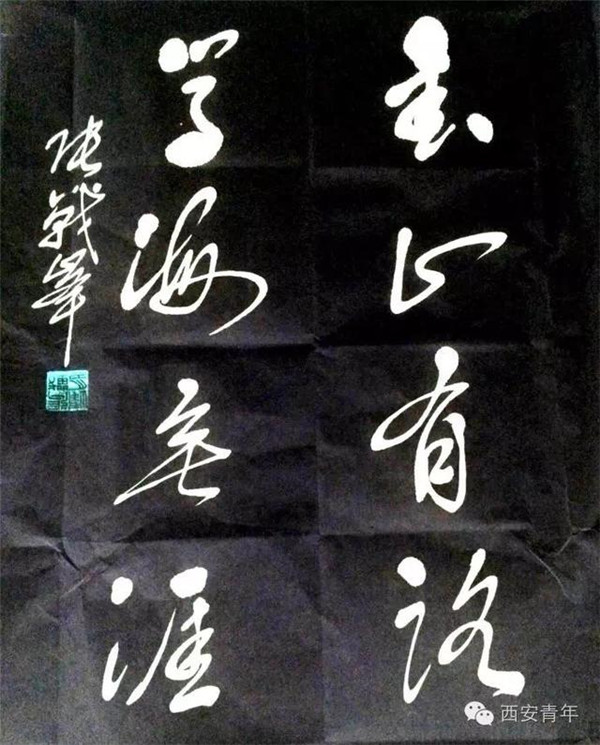 书山有路
学海无涯
张战峰
西安青年